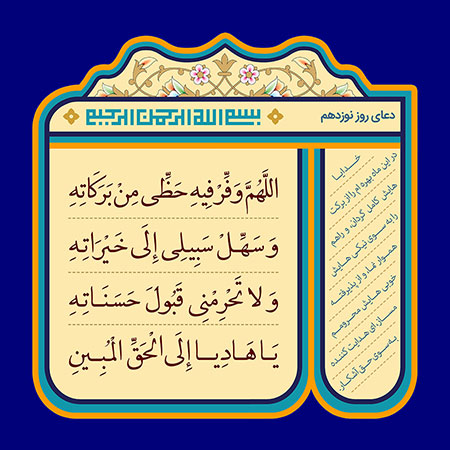 دعای روز نوزدهم
بسم الله الرحمن الرحیم
اللَّهُمَّ وَفِّرْ فِيهِ حَظِّى مِنْ بَرَكَاتِهِ
وَ سَهِّلْ سَبِيلِى إِلَى خَيْرَاتِهِ
وَ لَا تَحْرِمْنِى قَبُولَ حَسَنَاتِهِ
يَا هَادِيا إِلَى الْحَقِّ الْمُبِينِ
خدایا
در این ماه بهره‌ام را از برکت
هایش کامل گردان و راهم
را به سوی نیکی هایش
هموار نما و از پذیرفته
خوبی هایش محرومم
مساز ای هدایت کننده
به سوی حق آشکار.